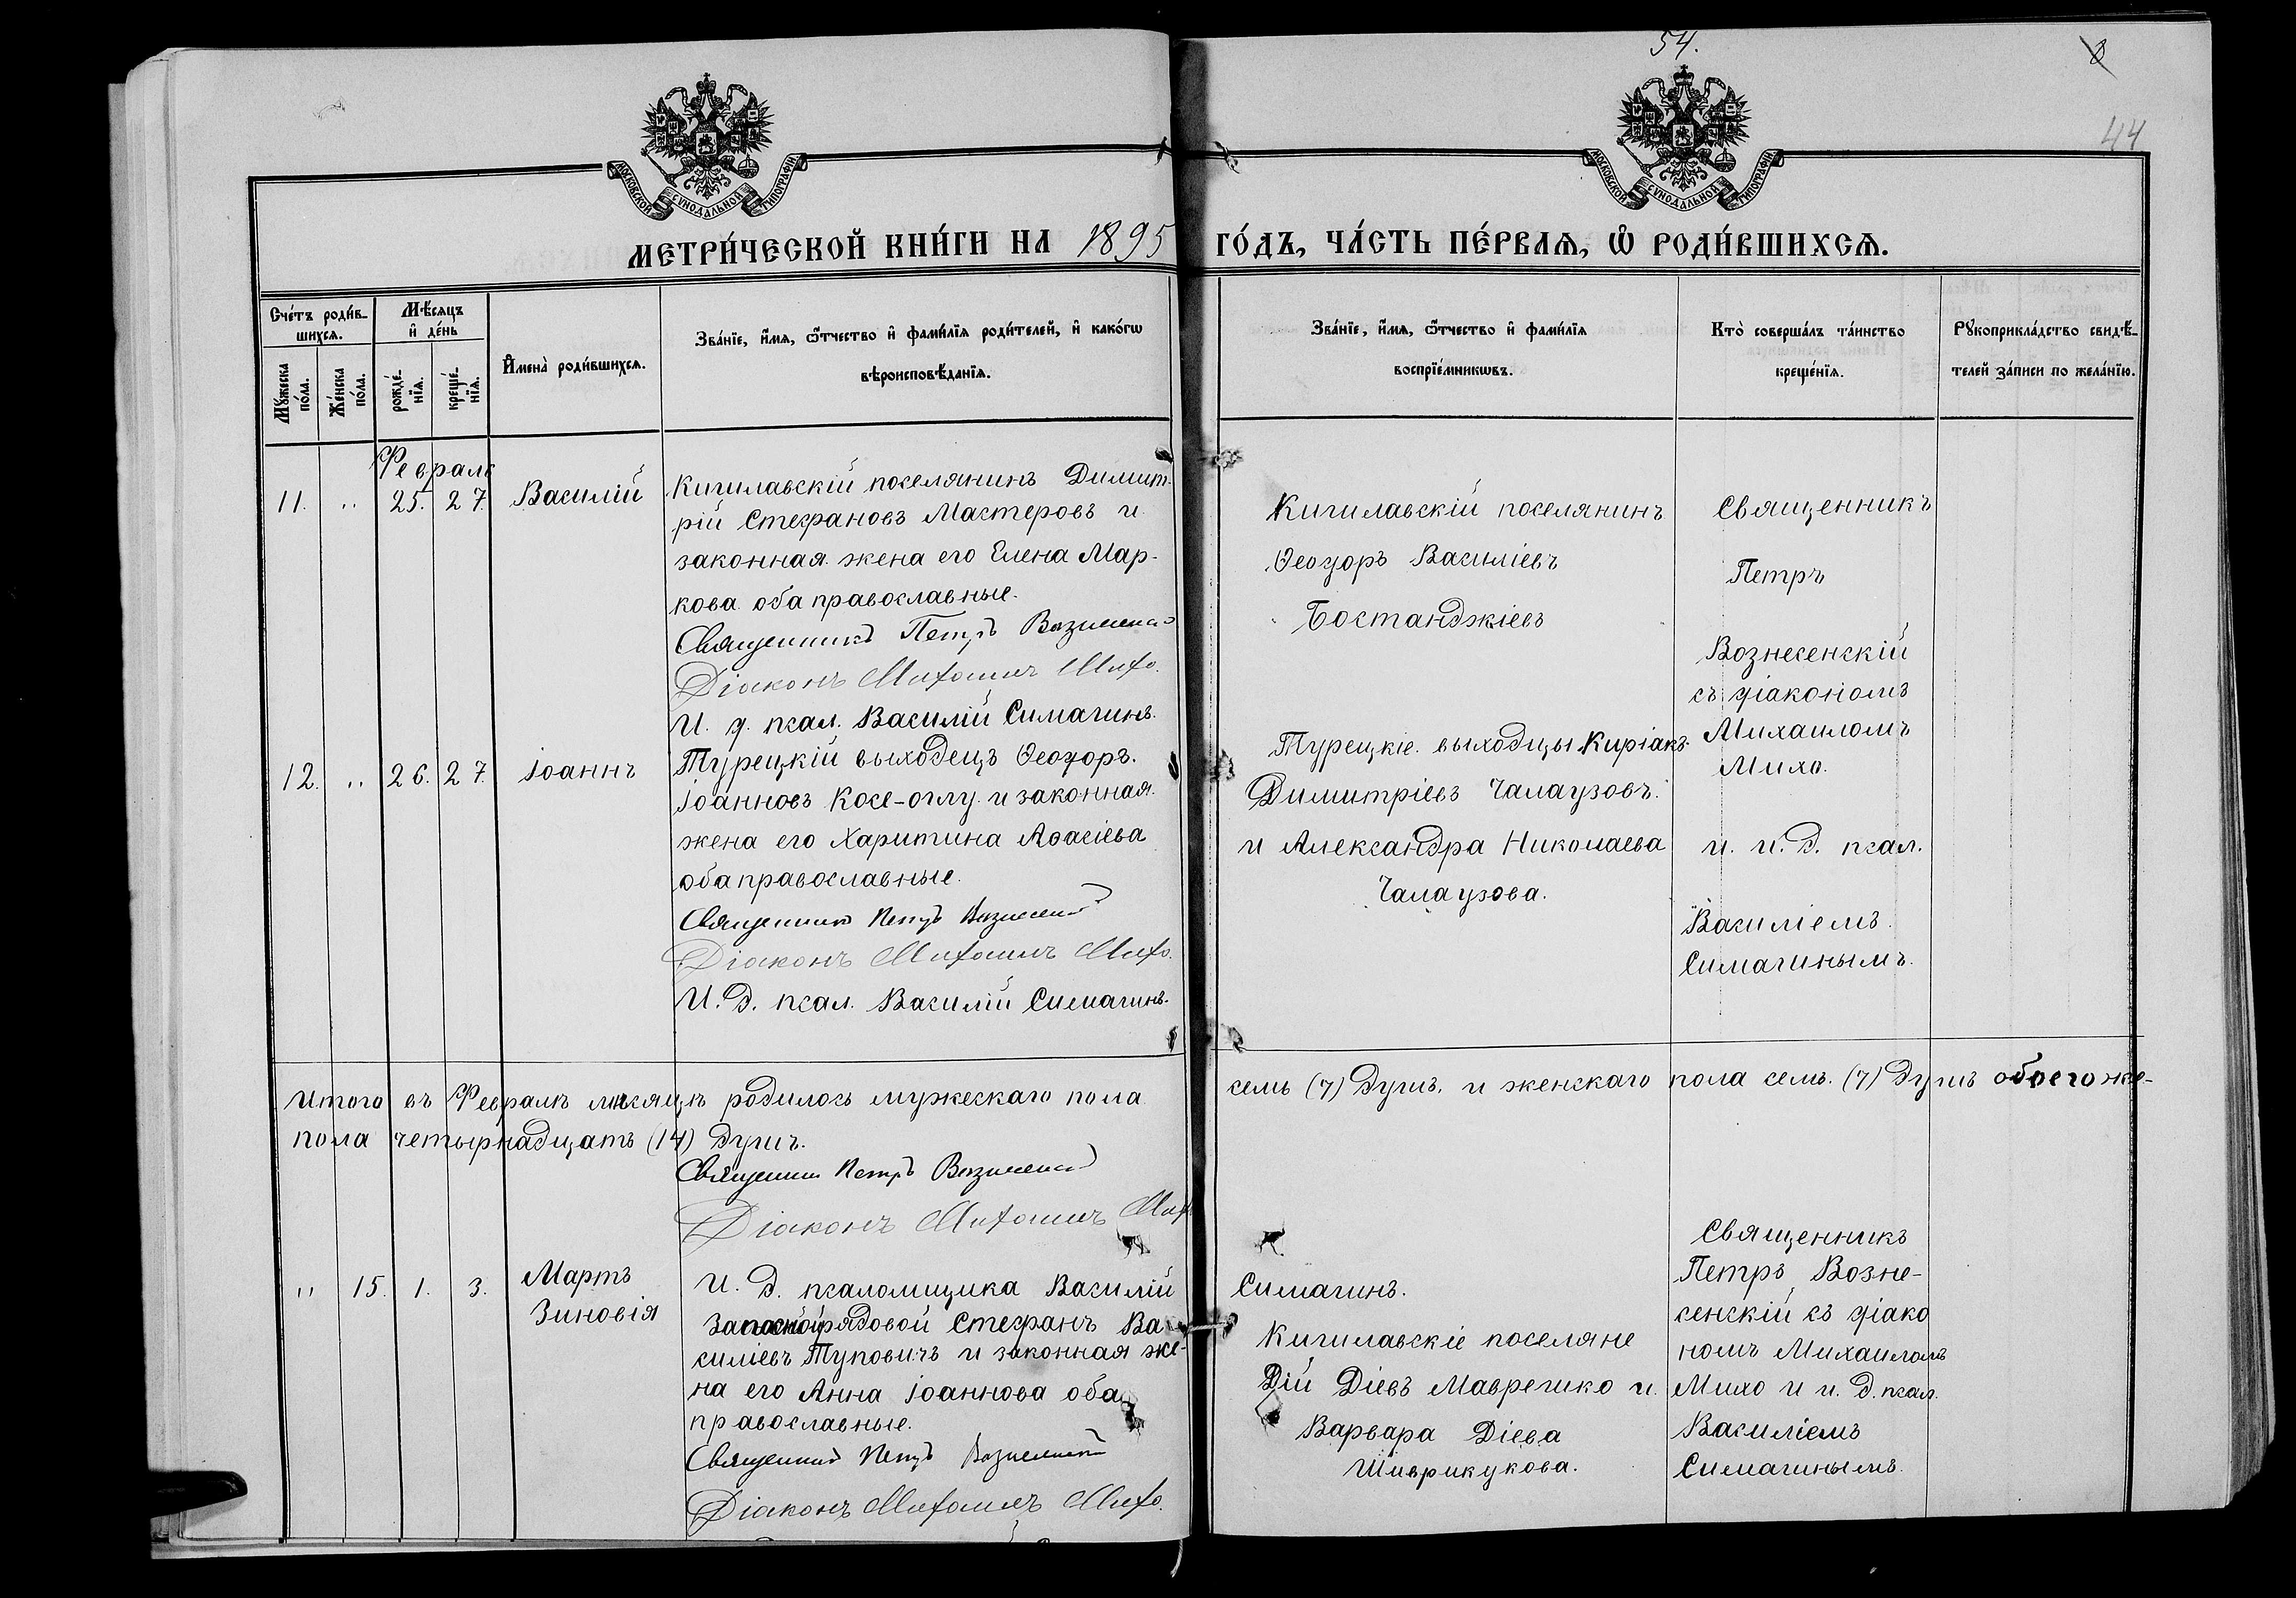 54.
8
44
МОСКОВСКОЙ СѴНОДАЛЬНОЙ ТИПОГРАФІИ
МОСКОВСКОЙ СѴНОДАЛЬНОЙ ТИПОГРАФІИ
МЕТРИ́ЧЕСКОЙ КНИ́ГИ НА 1895 ГО́ДЪ, ЧА́СТЬ ПЕ́РВАѦ, Ѡ҆ РОДИ́ВШИХСѦ.
Сче́тъ роди́в-
шихсѧ.
Мꙋ́жеска
по́ла.
Же́нска
по́ла.
Мѣ́сѧцъ
и҆ де́нь
рожде́-
нїѧ.
креще́-
нїѧ.
И҆мена̀ роди́вшихсѧ.
Зва́нїе, и҆́мѧ, ѻ҆́тчество и҆ фами́лїѧ роди́телей, и҆ како́гѡ
вѣроисповѣ́данїѧ.
Зва́нїе, и҆́мѧ, ѻ҆́тчество и҆ фами́лїѧ
воспрїе́мникѡвъ.
Кто̀ соверша́лъ та́инство
креще́нїѧ.
Рꙋкоприкла́дство свидѣ́-
телей за́писи по жела́нїю.
Февраль
11. „ 25. 27. Василій
Кигилавскій поселянинъ Димит-
рій Стефановъ Мастеровъ и
законная жена его Елена Мар-
кова оба православные.
Священникъ Петръ Вознесенскій
Діаконъ Михаилъ Михо.
И. д. псал. Василій Симагинъ.
Кигилавскій поселянинъ
Ѳеодоръ Василіевъ
Бостанджіевъ
Священникъ
Петръ
Вознесенскій
съ діакономъ
Михаиломъ
Михо.
и. и. д. псал.
Василіемъ
Симагинымъ.
12. „ 26. 27. Іоаннъ
Турецкій выходецъ Ѳеодоръ
Іоанновъ Косе-оглу и законная
жена его Харитина Аѳасіева
оба православные.
Священникъ Петръ Вознесенскій
Діаконъ Михаилъ Михо.
И. д. псал. Василій Симагинъ.
Турецкіе выходцы Киріакъ
Димитріевъ Чалаузовъ
и Александра Николаева
Чалаузова.
Итого въ Февралѣ мѣсяцѣ родилось мужескаго пола семь (7) душъ. и женскаго пола семь (7) душъ обоего же-
пола четырнадцать (14) душъ.
Священникъ Петръ Вознесенскій
Діаконъ Михаилъ Михо
И. д. псаломщика Василій Симагинъ.
Мартъ
„ 15. 1. 3. Зиновія
запасной рядовой Стефанъ Ва-
силіевъ Туповичъ и законная же-
на его Анна Іоаннова оба
православные.
Священникъ Петръ Вознесенскій
Діаконъ Михаилъ Михо.
Кигилавскіе поселяне
Дій Діевъ Маврешко и
Варвара Діева
Шиврикукова.
Священникъ
Петръ Возне-
сенскій съ діако
номъ Михаиломъ
Михо и и. д. псал.
Василіемъ
Симагинымъ.